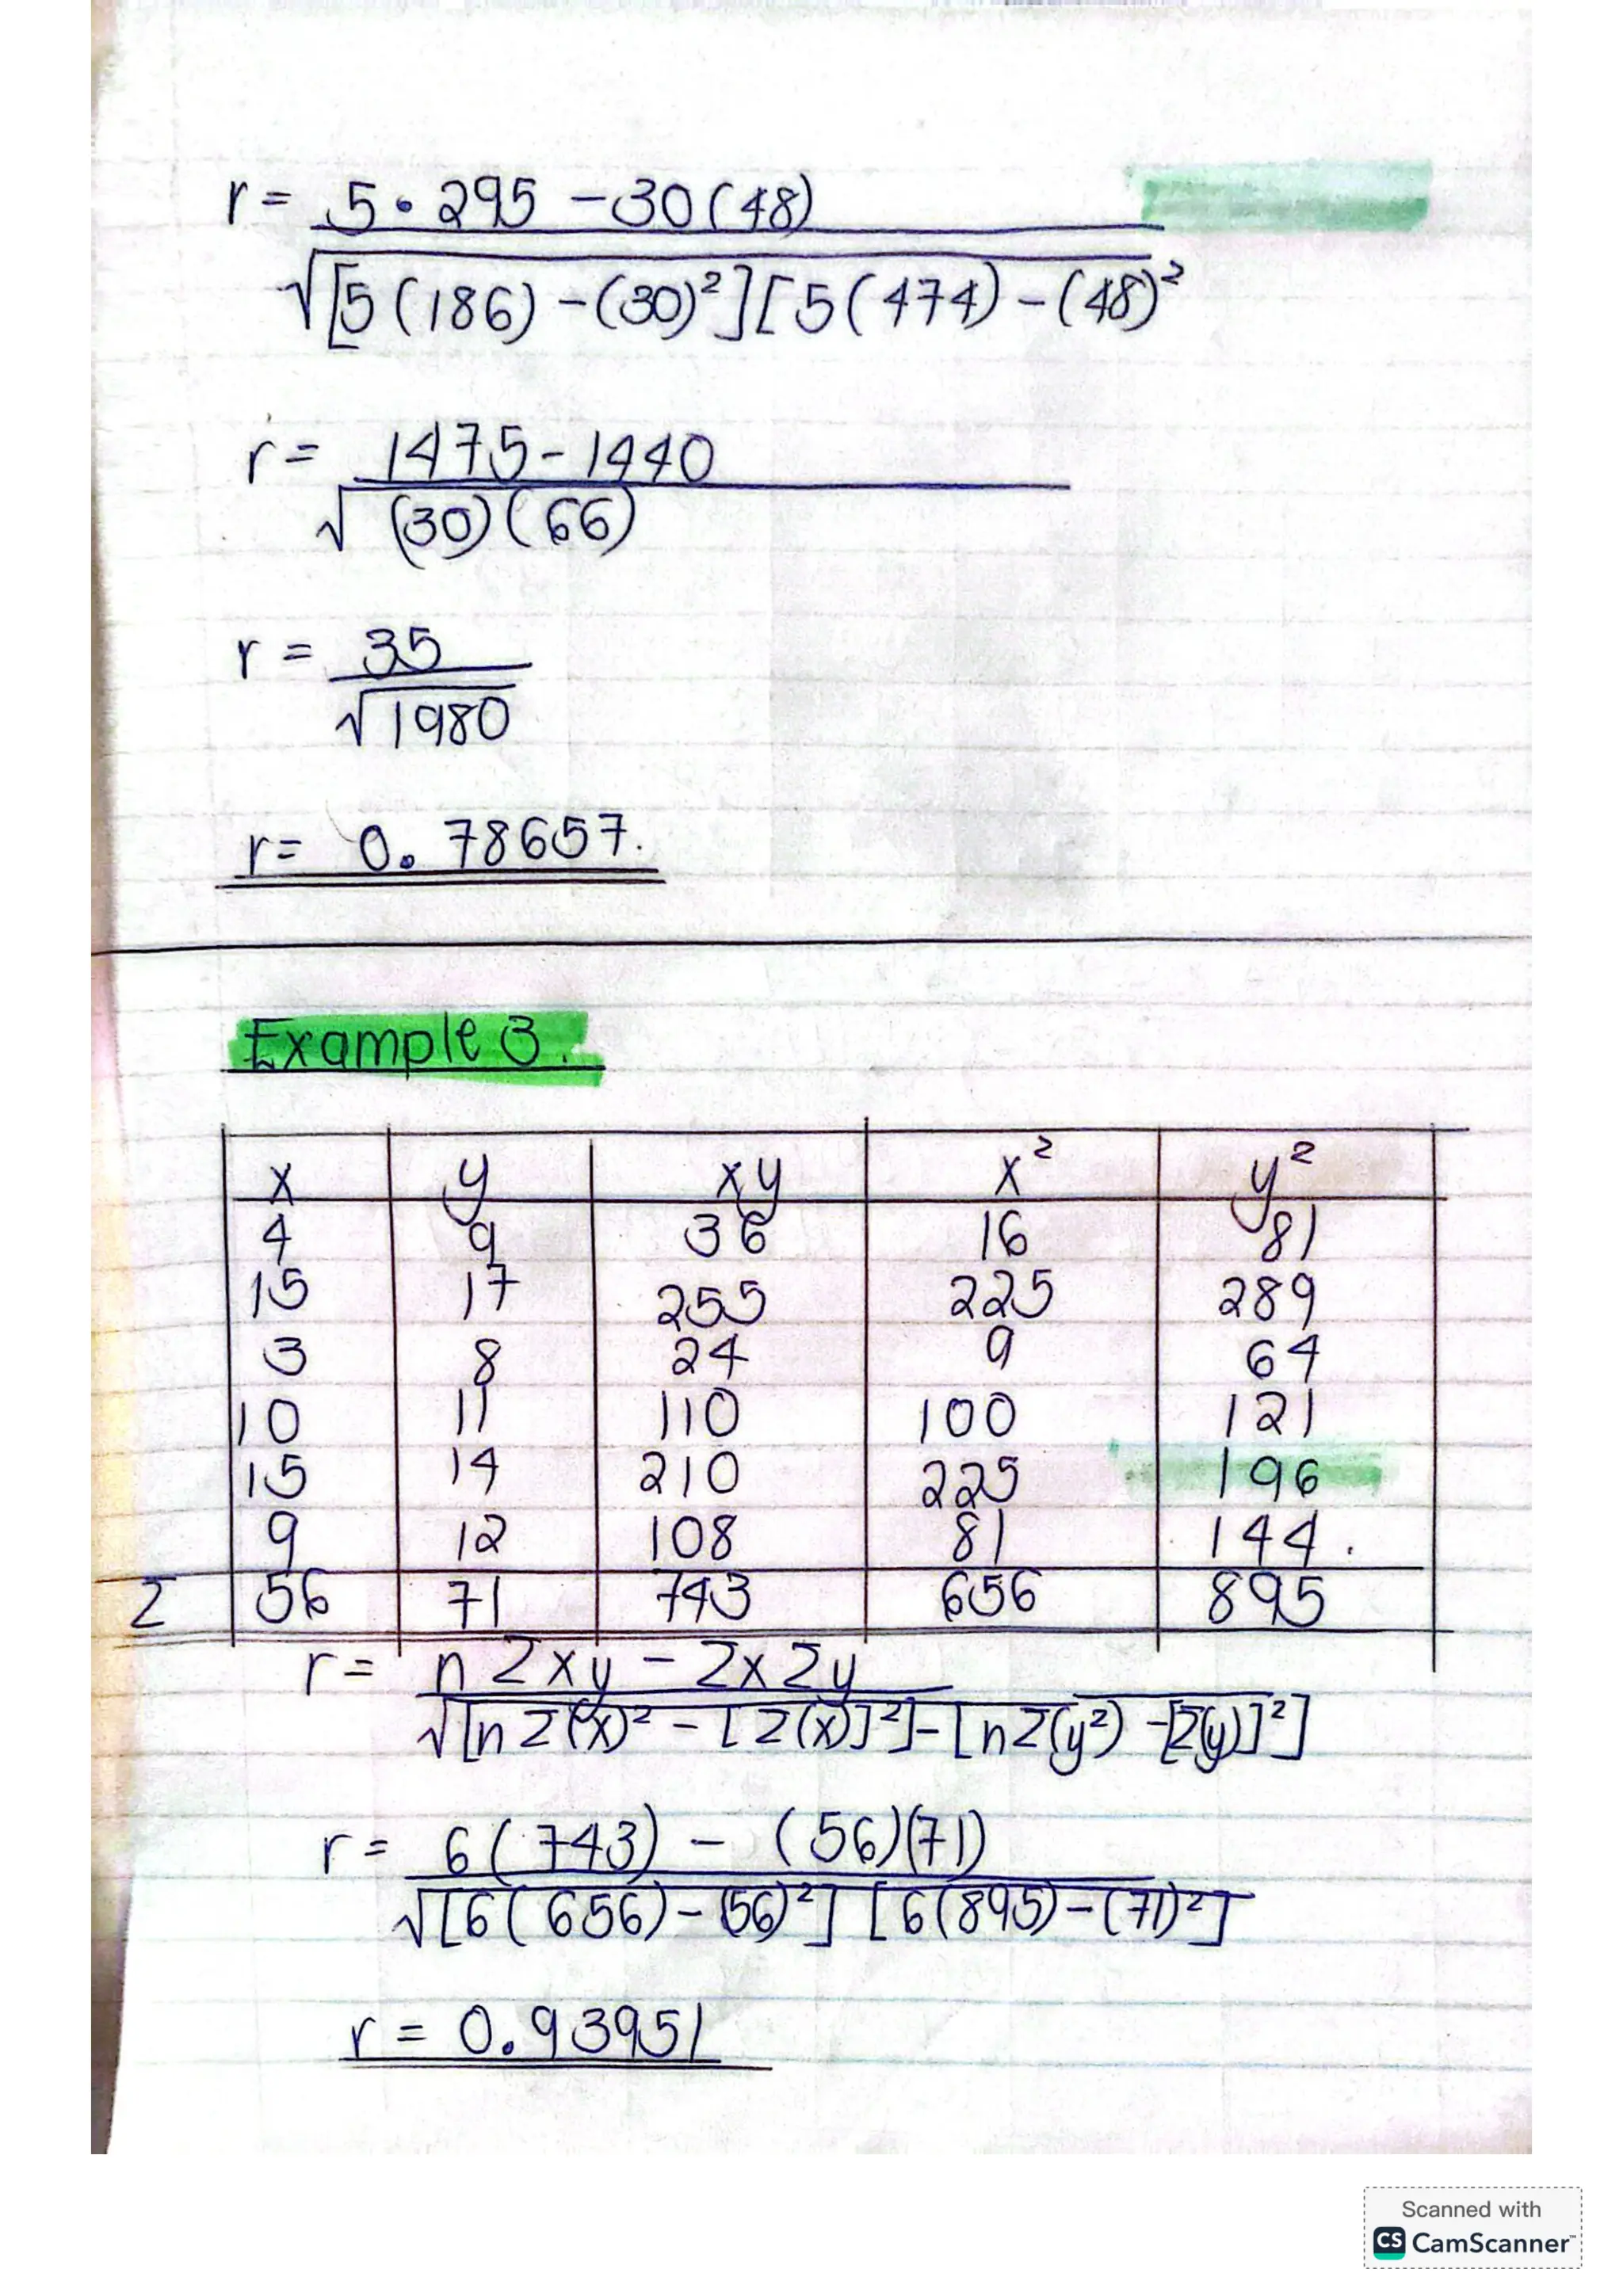 r = 5 • 295 - 30(48)
√[5(186) - (30)²][5(474) - (48)²
r = 1475 - 1440
√(30)(66)
r = 35
√1980
r = 0.78657.
Example 3.
x y xy x² y²
4 9 36 16 81
15 17 255 225 289
3 8 24 9 64
10 11 110 100 121
15 14 210 225 196
9 12 108 81 144.
Σ 56 71 743 656 895
r = nΣxy - ΣxΣy
√[nΣ(x)² - [Σ(x)]²] - [nΣ(y²) - [Σ(y)]²]
r = 6(743) - (56)(71)
√[6(656) - (56)²] [6(895) - (71)²]
r = 0.93951
Scanned with
CS CamScanner™